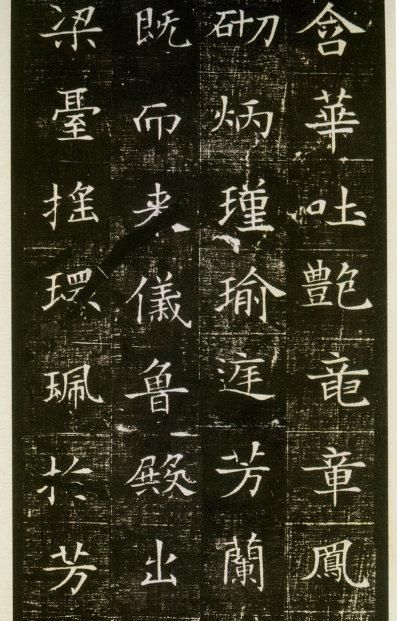 含華吐艶竜章鳳
砌炳瑾瑜庭芳蘭
既而来儀魯殿出
梁臺揺環珮於芳